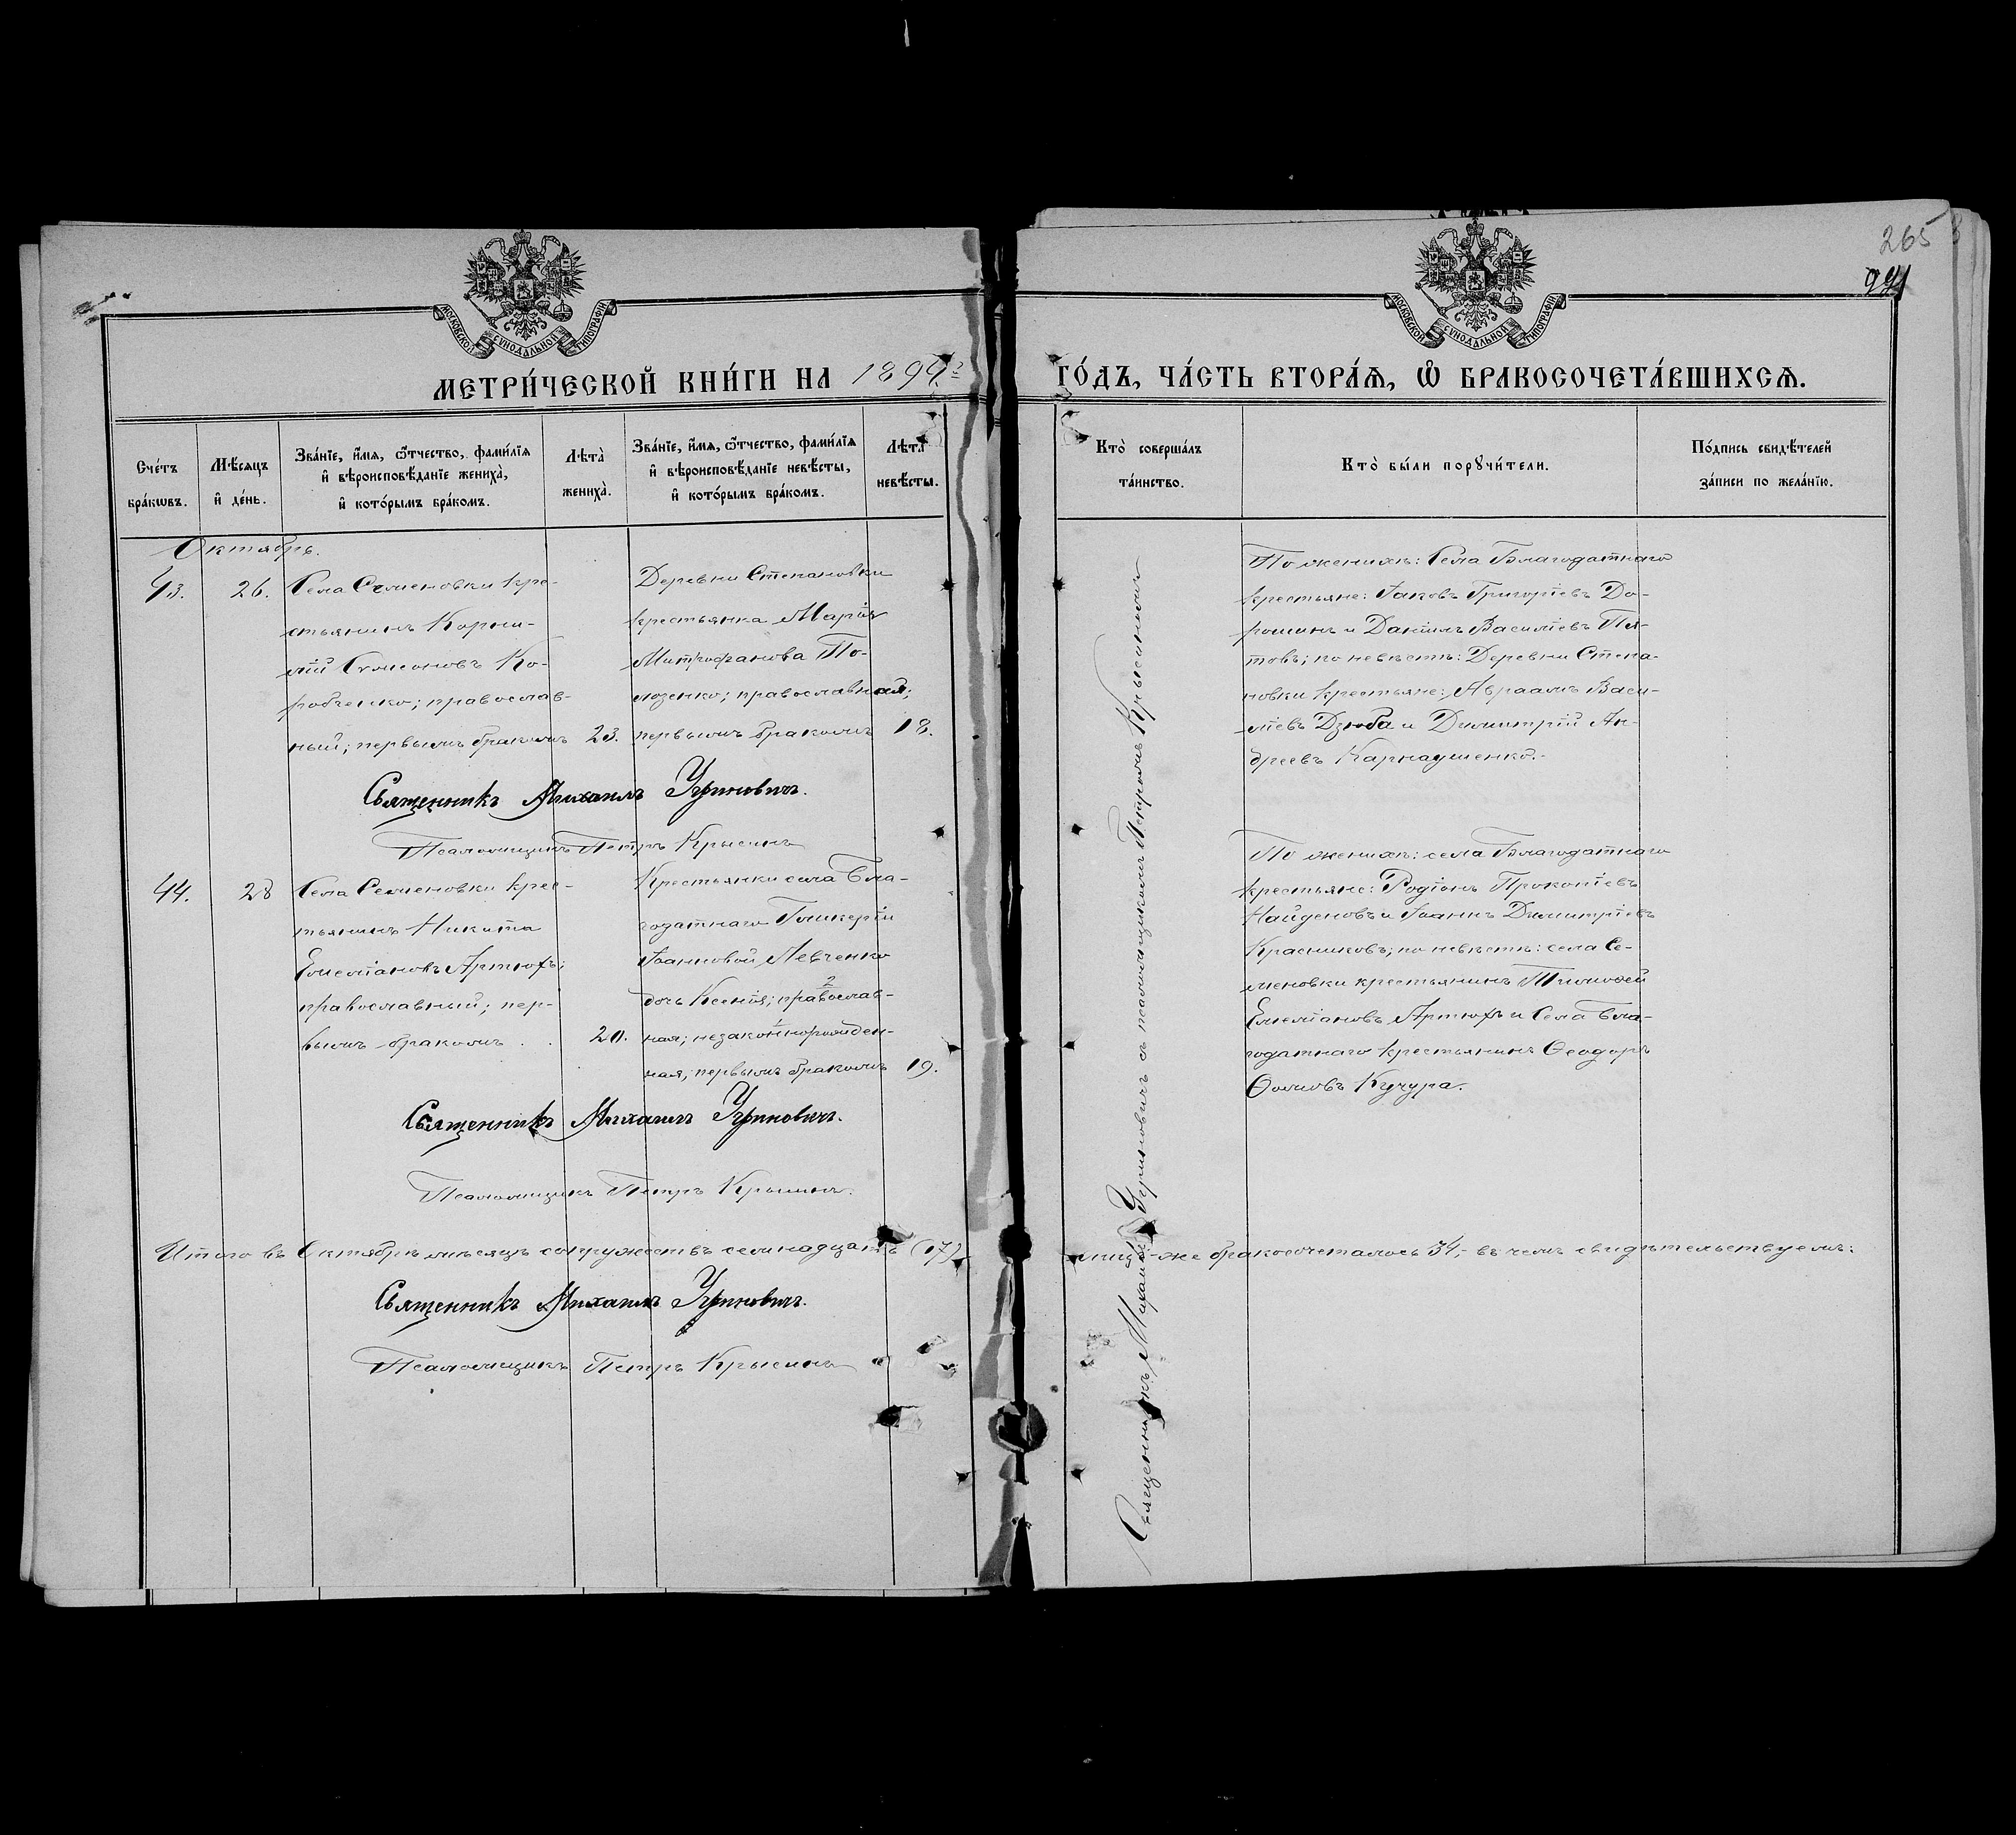 265
991
МОСКОВСКОЙ СѴНОДАЛЬНОЙ ТИПОГРАФІИ
МОСКОВСКОЙ СѴНОДАЛЬНОЙ ТИПОГРАФІИ
МЕТРИ́ЧЕСКОЙ КНИ́ГИ НА 1899 ГО́ДЪ, ЧА́СТЬ ВТОРА́Я, Ѽ БРАКОСОЧЕТА́ВШИХСЯ.
Сче́тъ бра́кѡвъ.
Мѣ́сяцъ и де́нь.
Зва́нїе, и́мя, ѻ́тчество, фами́лїя
и вѣроисповѣ́данїе жениха̀,
и кото́рымъ бра́комъ.
Лѣта̀ жениха̀.
Зва́нїе, и́мя, ѻ́тчество, фами́лїя
и вѣроисповѣ́данїе невѣ́сты,
и кото́рымъ бра́комъ.
Лѣта̀ невѣ́сты.
Кто̀ соверша́лъ
та́инство.
Кто̀ бы́ли порꙋчи́тели.
По́дпись свидѣ́телей
за́писи по жела́нїю.
Октябрь.
43.
26.
Села Семеновки кре-
стьянинъ Корни-
лій Симеоновъ Ко-
робченко; православ-
ный; первымъ бракомъ
23.
Деревни Степановки
крестьянка Марія
Митрофанова По-
лозенко; православная;
первымъ бракомъ
18.
По женихѣ: Села Благодатнаго
крестьяне: Іаковъ Григоріевъ До-
рошинъ и Даніилъ Василіевъ Пя-
товъ; по невѣстѣ: Деревни Степа-
новки крестьяне: Авраамъ Васи-
ліевъ Дзюба и Димитрій Ан-
дреевъ Карнаушенко.
Священникъ Михаилъ Угриновичъ.
Псаломщикъ Петръ Крысинъ
44.
28
Села Семеновки крес-
тьянинъ Никита
Емеліановъ Артюхъ;
православный; пер-
вымъ бракомъ
20.
Крестьянки села Бла-
годатнаго Гликеріи
Іоанновой Левченко
дочь Ксенія; 2 православ-
ная; 1 незаконнорожден-
ная; первымъ бракомъ
19.
По женихѣ: села Благодатнаго
крестьяне: Родіонъ Прокопіевъ
Найденовъ и Іоаннъ Димитріевъ
Красниковъ; по невѣстѣ: села Се-
меновки крестьянинъ Тимоѳей
Емеліановъ Артюхъ и Села Бла-
годатнаго крестьянинъ Ѳеодоръ
Ѳоминъ Кучура.
Священникъ Михаилъ Угриновичъ съ псаломщикомъ Петромъ Крысинымъ
Священникъ Михаилъ Угриновичъ.
Псаломщикъ Петръ Крысинъ.
Итого въ Октябрѣ мѣсяцѣ супружествъ семнадцать (17) лицъ-же бракосочеталось 34,- въ чемъ свидѣтельствуемъ:
Священникъ Михаилъ Угриновичъ.
Псаломщикъ Петръ Крысинъ